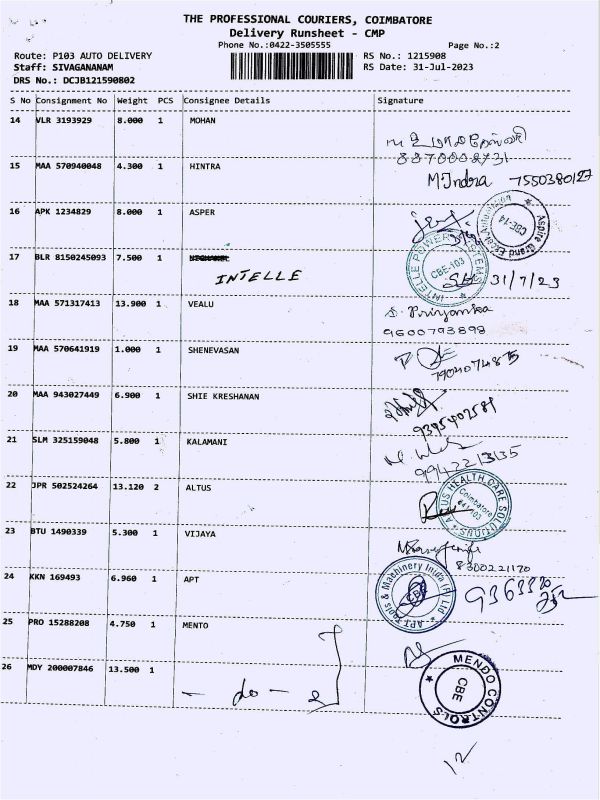 THE PROFESSIONAL COURIERS, COIMBATORE
Delivery Runsheet - CMP
Phone No.:0422-3505555 Page No.:2
Route: P103 AUTO DELIVERY RS No.: 1215908
Staff: SIVAGANANAM RS Date: 31-Jul-2023
DRS No.: DCJB121590802
S No Consignment No Weight PCS Consignee Details Signature
14 VLR 3193929 8.000 1 MOHAN
8870008731
15 MAA 570940048 4.300 1 HINTRA
M.Indra 7550380127
16 APK 1234829 8.000 1 ASPER
CBE-14
17 BLR 8150245093 7.500 1
INTELLE
INTELLE POWER SYSTEMS
CBE-103
31/7/23
18 MAA 571317413 13.900 1 VEALU
S. Priyanka
9600793898
19 MAA 570641919 1.000 1 SHENEVASAN
7904074875
20 MAA 943027449 6.900 1 SHIE KRESHANAN
9395402581
21 SLM 325159048 5.800 1 KALAMANI
9942213135
22 JPR 502524264 13.120 2 ALTUS
ALTUS HEALTH CARE SOLUTIONS
Coimbatore
641 103
23 BTU 1490339 5.300 1 VIJAYA
8300221170
24 KKN 169493 6.960 1 APT
APT Tools & Machinery India (P) Ltd
CBE
25 PRO 15288208 4.750 1 MENTO
26 MDY 200007846 13.500 1
- do -
MENDO CONTROLS
CBE
12